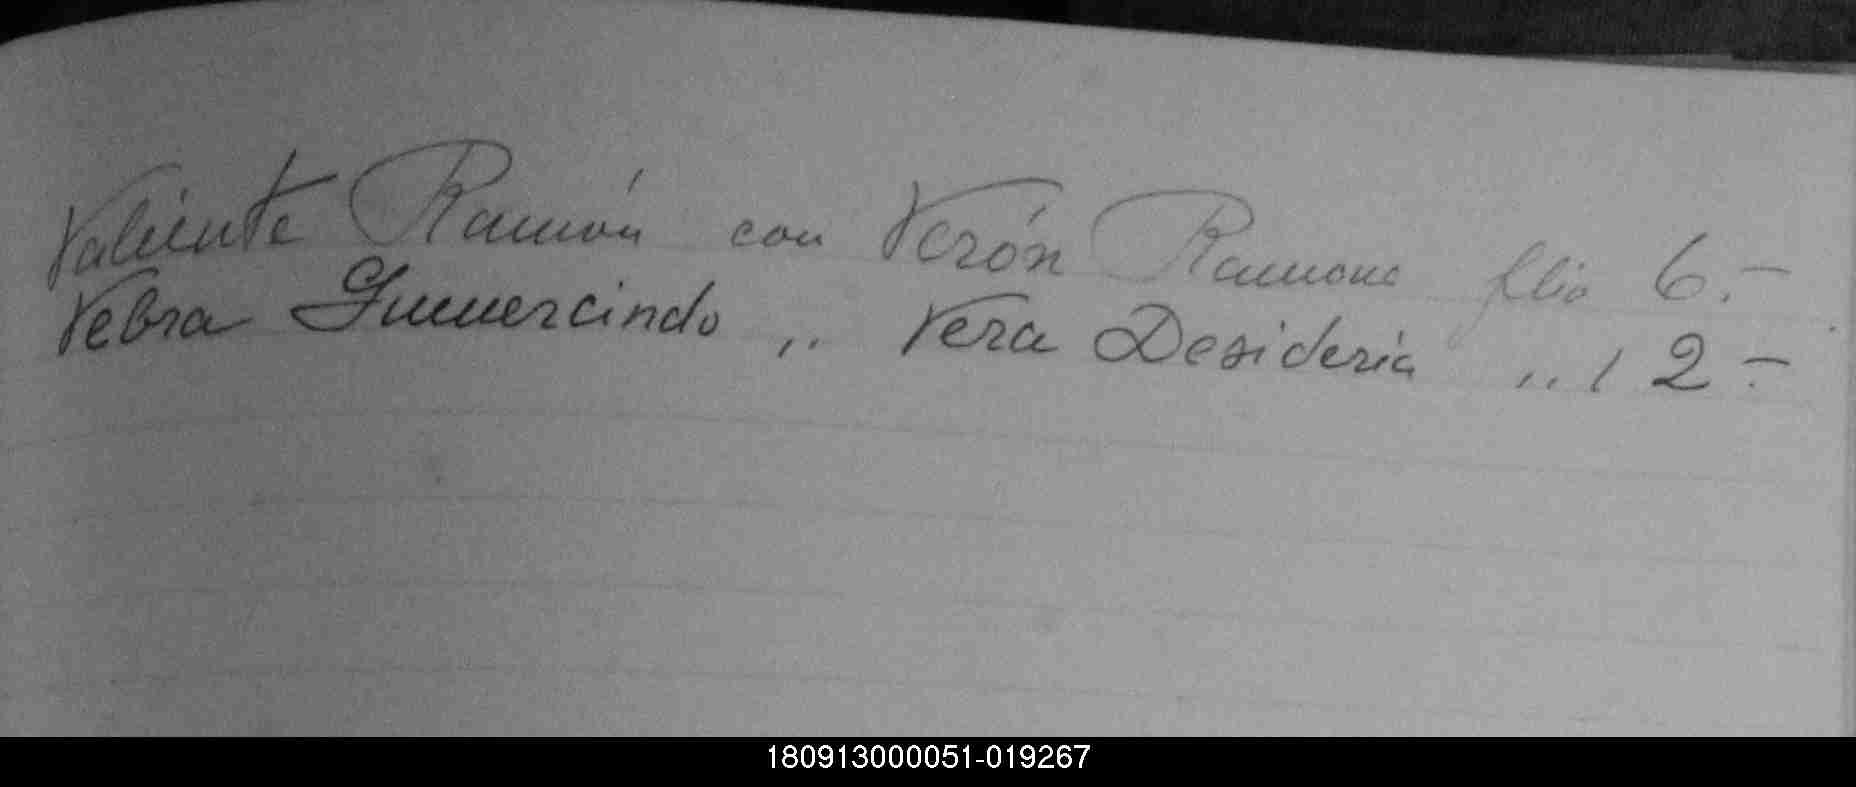 Valiente Ramón con Verón Ramona flio 6.-
Vebra Gumercindo ,, Vera Desideria ,, 12.-
180913000051-019267